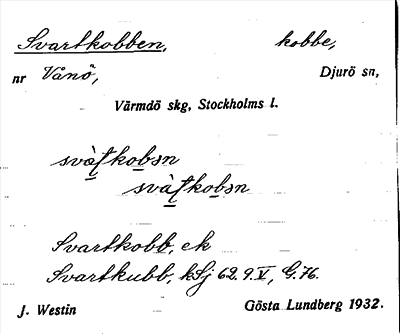 Svartkobben, kobbe,
nr Vånö, Djurö sn,
Värmdö skg, Stockholms l.
svàʈkobən
svàʈkobən
Svartkobb, ek
Svartkubb, kSj 62. 9. V, G. 76.
J. Westin Gösta Lundberg 1932.